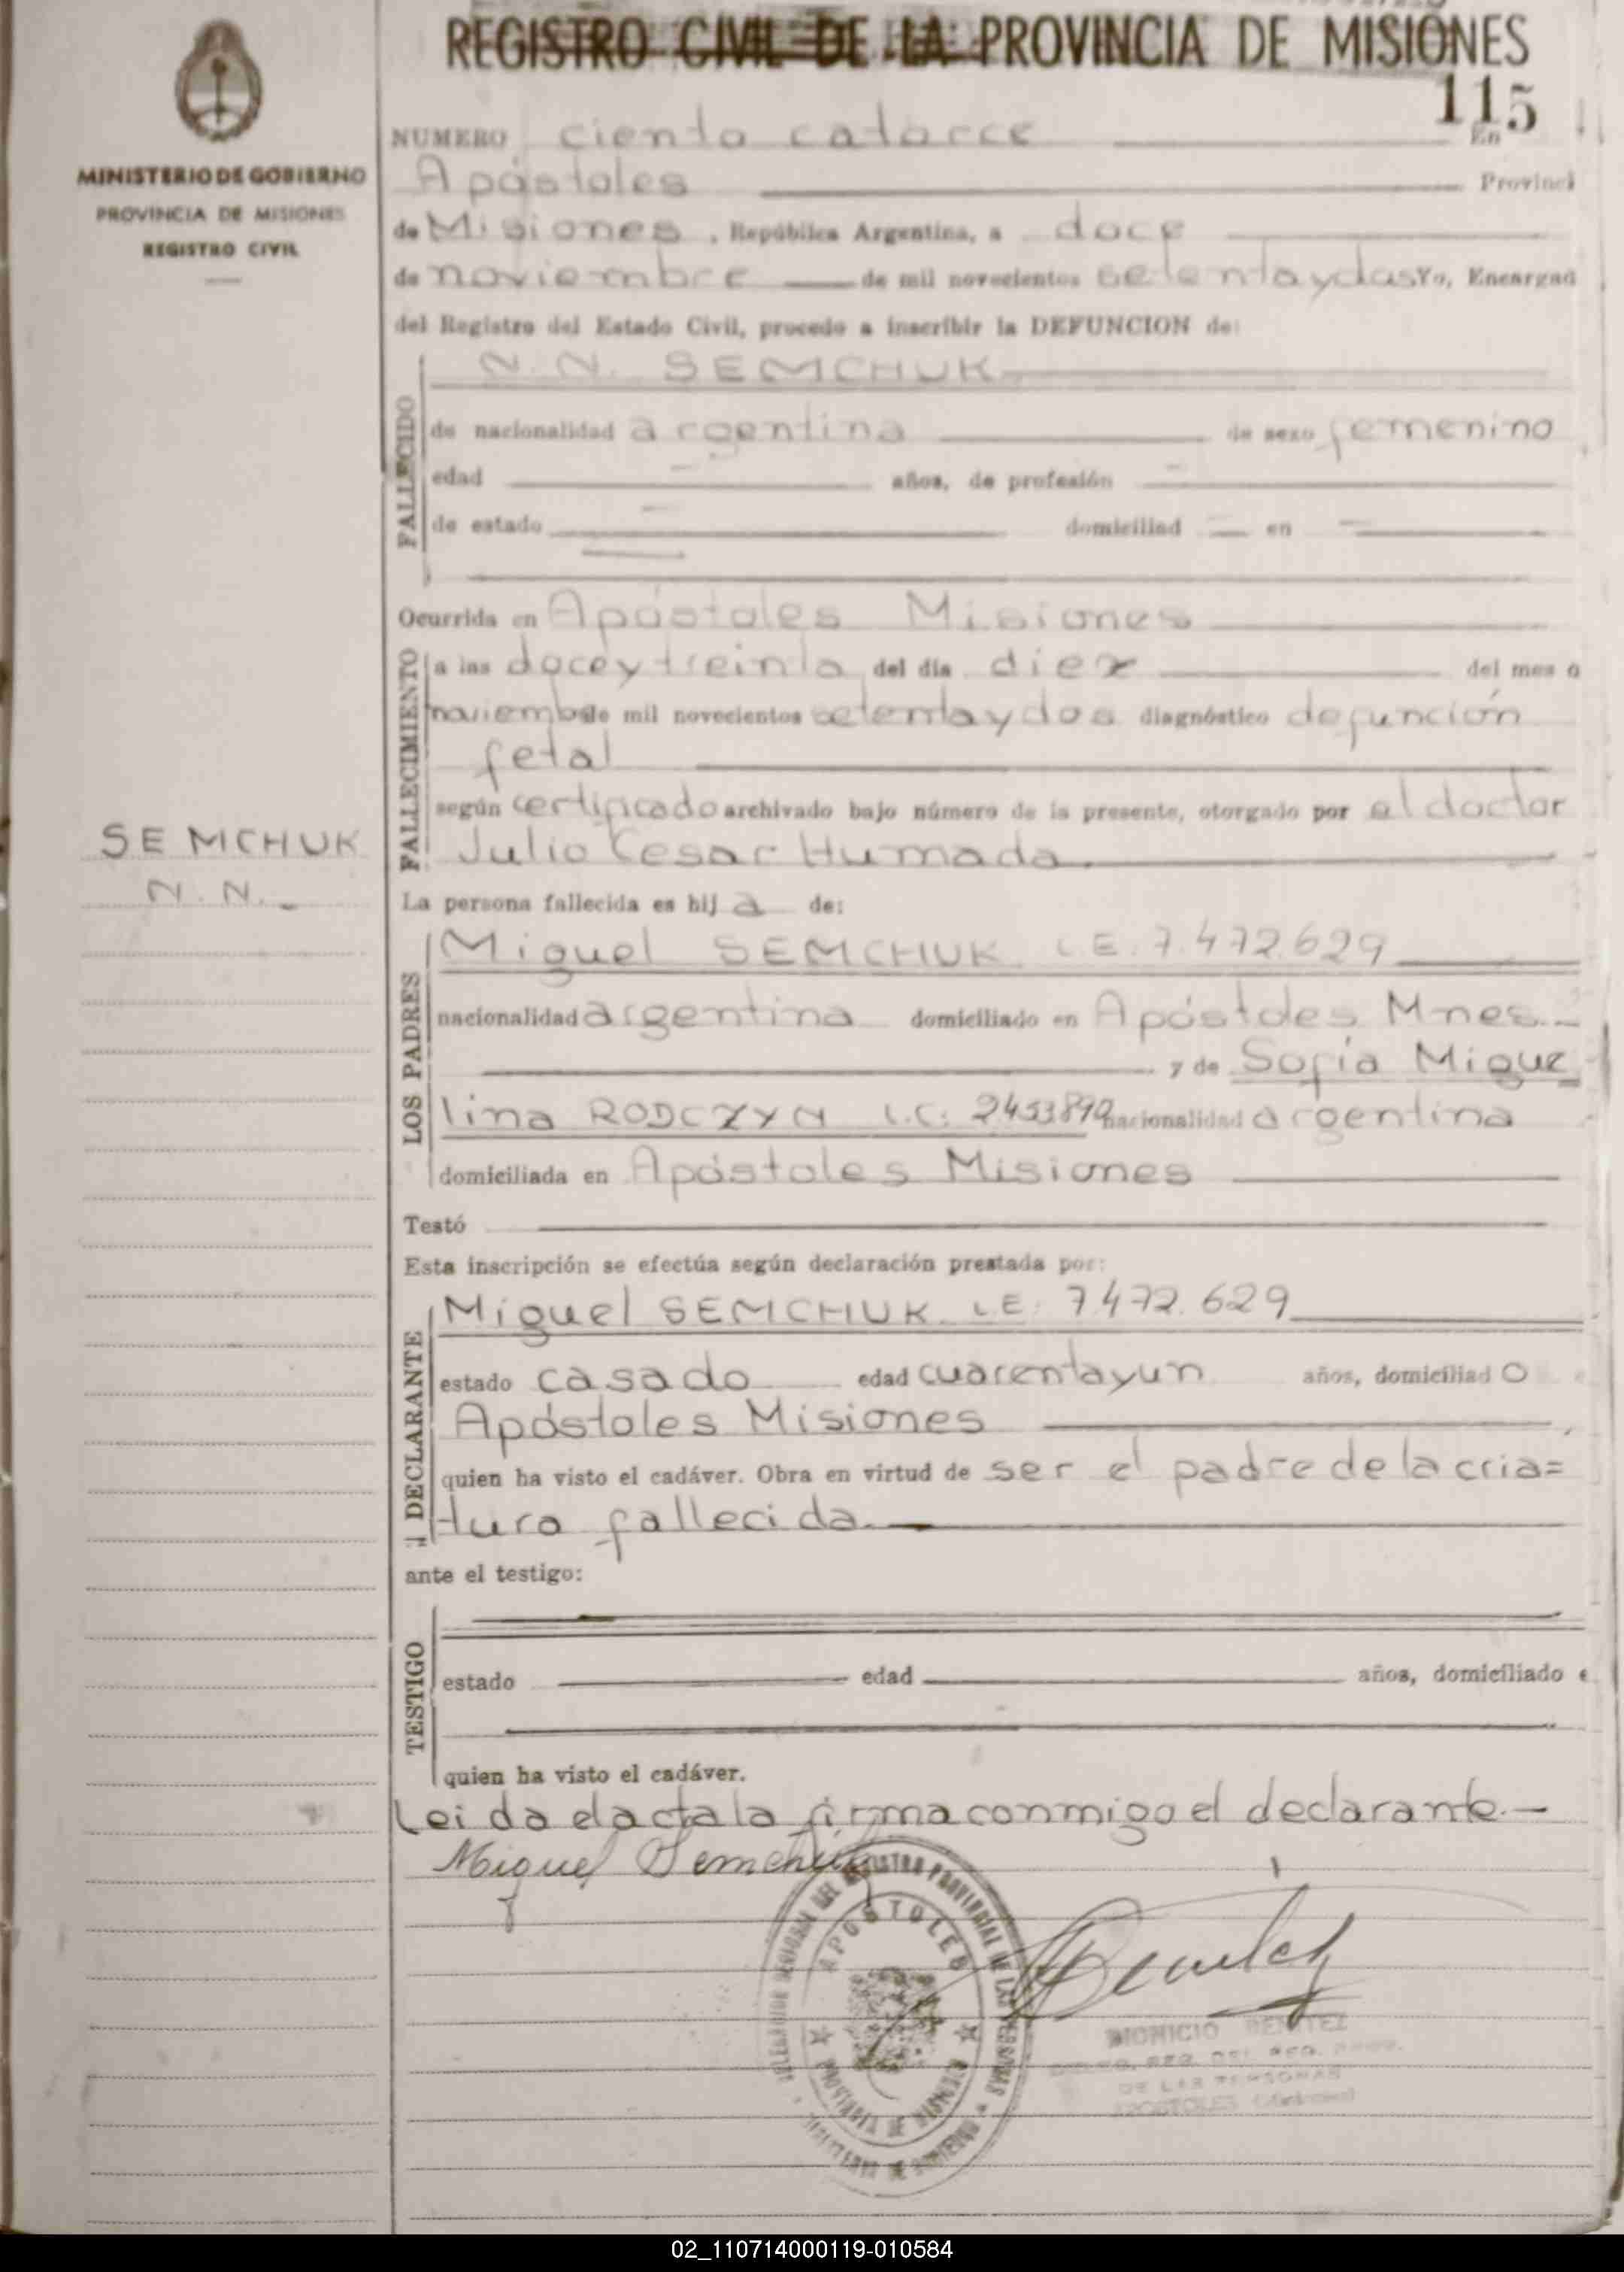 REGISTRO CIVIL DE LA PROVINCIA DE MISIONES
115
MINISTERIO DE GOBIERNO
PROVINCIA DE MISIONES
REGISTRO CIVIL
NUMERO ciento catorce En
Apóstoles Provinci
de Misiones, República Argentina, a doce
de noviembre de mil novecientos setentaydos Yo, Encargad
del Registro del Estado Civil, procedo a inscribir la DEFUNCION de:
FALLECIDO
N.N. SEMCHUK
de nacionalidad argentina de sexo femenino
edad — años, de profesión —
de estado — domiciliad — en —
Ocurrida en Apóstoles Misiones
FALLECIMIENTO
a las doceytreinta del día diez del mes
noviembre de mil novecientos setentaydos diagnóstico defunción
fetal
según certificado archivado bajo número de la presente, otorgado por el doctor
Julio Cesar Humada.
SEMCHUK
N.N.-
La persona fallecida es hij a de:
LOS PADRES
Miguel SEMCHUK L.E. 7.472.629
nacionalidad argentina domiciliado en Apóstoles Mnes.-
y de Sofía Migue
lina RODCZYN L.C: nacionalidad argentina
domiciliada en Apóstoles Misiones
Testó
Esta inscripción se efectúa según declaración prestada por:
DECLARANTE
Miguel SEMCHUK. L.E: 7.472.629
estado casado edad cuarentayun años, domiciliad o
Apóstoles Misiones
quien ha visto el cadáver. Obra en virtud de ser el padre de la cria=
tura fallecida.-
ante el testigo:
TESTIGO
estado edad años, domiciliado e
quien ha visto el cadáver.
Leida el acta la firma conmigo el declarante.-
Miguel Semchuk
APOSTOLES
PROVINCIA DE MISIONES
DIONICIO BENITEZ
DE LAS PERSONAS
APOSTOLES (Misiones)
02_110714000119-010584